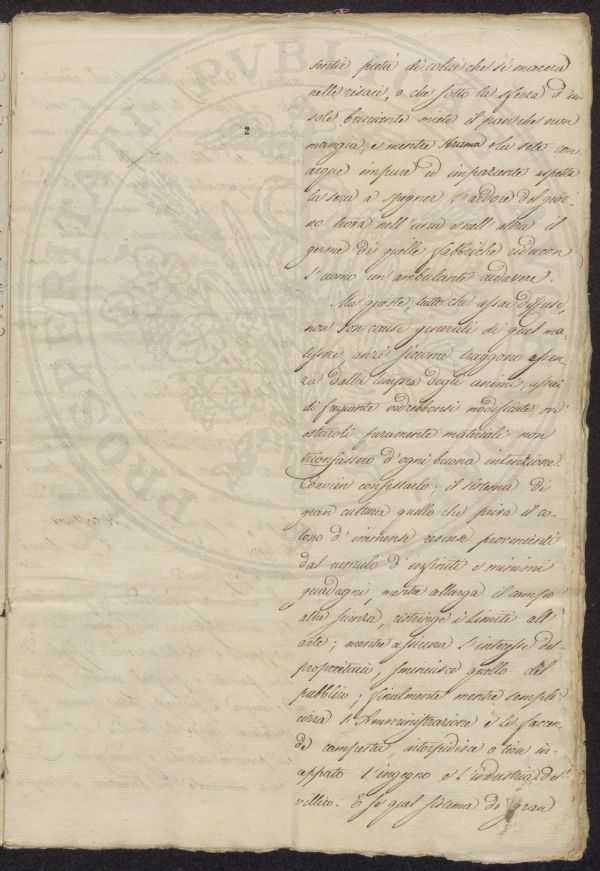 2
sentir pietà di colui che si macera
nelle risaie, o che sotto la sferza d'un
sole bruciante miete il pan che non
mangia, e mentre la sete con
acque impure ed impaziente aspetta
la sera a spegner l'ardore del gior-
no trova nell'una e nell'altra il
germe di quelle febbri che riducon
l'uomo un ambulante cadavere.
Ma queste, tutto che assai diffuse,
non son cause generali di quel ma-
lessere, anzi siccome traggono essen-
za dalla tempra degli animi, assai
di frequente vedrebbonsi modificate se
ostacoli puramente materiali non
trionfassero d'ogni buona intenzione.
Convien confessarlo; il sistema di
gran cultura quello che priva il co-
lono d'immense risorse provenienti
dal cumulo d'infiniti e minimi
guadagni, mentre allarga il campo
alla scienza, restringe i limiti all'
arte; mentre assicura l'interesse del
proprietario, sminuisce quello del
pubblico; finalmente mentre sempli-
cizza l'Amministrazione e le facen-
de campestri, intorpidisce o tien in-
ceppato l'ingegno e l'industria del
villico. E se qual sistema di gran
PROSPERITATI PVBLIC